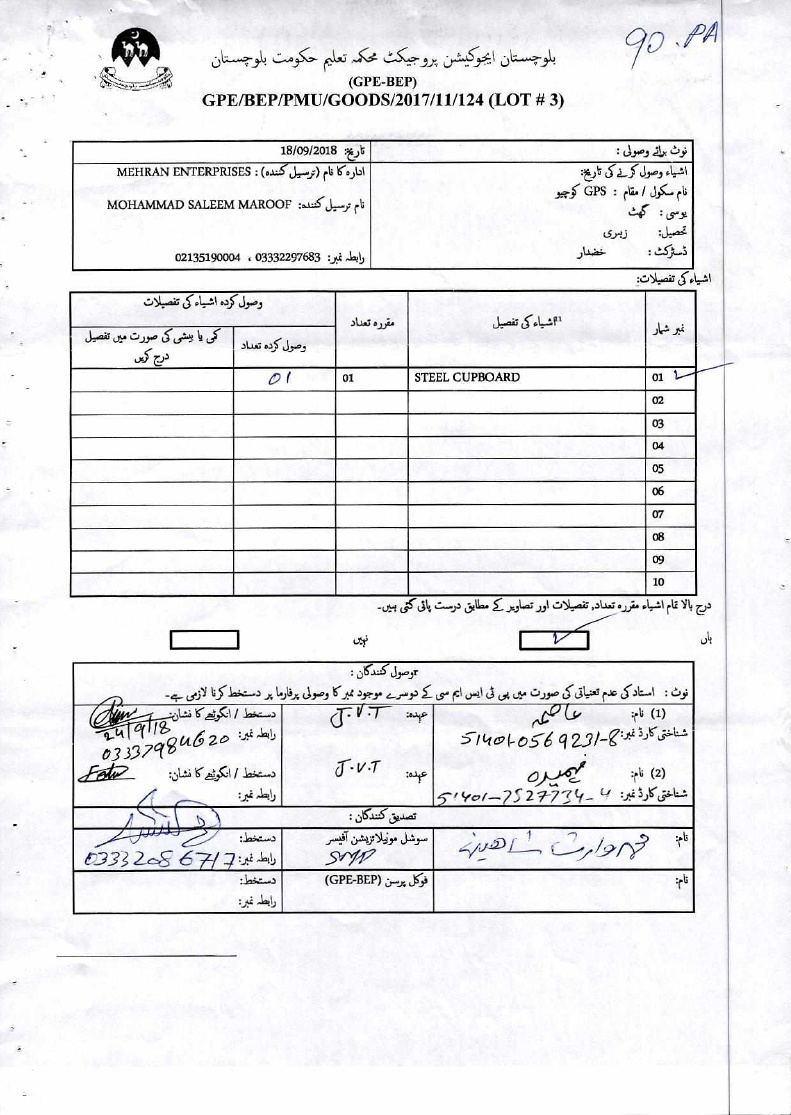 90.PA
بلوچستان ایجوکیشن پروجیکٹ محکمہ تعلیم حکومت بلوچستان
(GPE-BEP)
GPE/BEP/PMU/GOODS/2017/11/124 (LOT # 3)
نوٹ برائے وصولی :
اشیاء وصول کرنے کی تاریخ:
نام سکول / مقام : GPS کوچیو
یوسی : گھٹ
تحصیل: زہری
ڈسٹرکٹ : خضدار
تاریخ 18/09/2018
ادارہ کا نام (ترسیل کنندہ) : MEHRAN ENTERPRISES
نام ترسیل کنندہ: MOHAMMAD SALEEM MAROOF
رابطہ نمبر: 03332297683 ، 02135190004
اشیاء کی تفصیلات:
نمبر شمار اشیاء کی تفصیل مقررہ تعداد وصول کردہ اشیاء کی تفصیلات
وصول کردہ تعداد کمی یا بیشی کی صورت میں تفصیل درج کریں
01 STEEL CUPBOARD 01 01
02
03
04
05
06
07
08
09
10
درج بالا تمام اشیاء مقررہ تعداد, تفصیلات اور تصاویر کے مطابق درست پائی گئی ہیں۔
ہاں نہیں
وصول کنندگان :
نوٹ : استاد کی عدم تعیناتی کی صورت میں پی ٹی ایس ایم سی کے دوسرے موجود ممبر کا وصولی پرفارما پر دستخط کرنا لازمی ہے۔
(1) نام: عاصمہ عہدہ: J.V.T دستخط / انگوٹھے کا نشان:
24/9/18
شناختی کارڈ نمبر: 51401-0569231-8 رابطہ نمبر: 03337984620
(2) نام: فہمیدہ عہدہ: J.V.T دستخط / انگوٹھے کا نشان:
شناختی کارڈ نمبر: 51401-7527734-4 رابطہ نمبر:
تصدیق کنندگان :
نام: سوشل موبیلائزیشن آفیسر دستخط:
رابطہ نمبر: 03332086717
نام: فوکل پرسن (GPE-BEP) دستخط:
رابطہ نمبر: